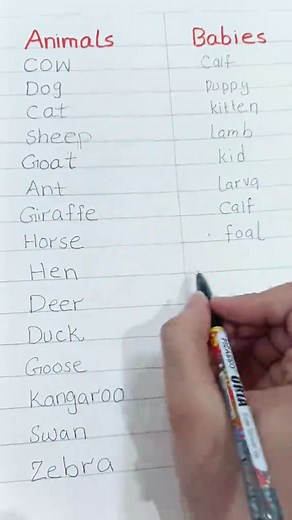 Animals Babies
COW Calf
Dog Puppy
Cat kitten
Sheep Lamb
Goat kid
Ant Larva
Giraffe Calf
Horse foal
Hen
Deer
Duck
Goose
Kangaroo
Swan
Zebra